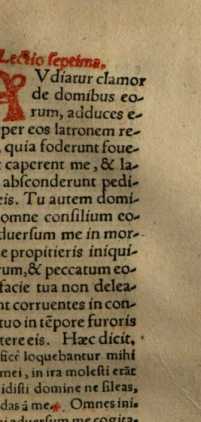 Lectio septima.
AVdiatur clamor
de domibus eo-
rum, adduces e-
per eos latronem re-
, quia foderunt foue-
t caperent me, & la-
absconderunt pedi-
eis. Tu autem domi-
omne consilium eo-
duersum me in mor-
e propitieris iniqui-
rum, & peccatum eo-
facie tua non delea-
nt corruentes in con-
tuo in tẽpore furoris
tere eis. Hæc dicit.
loquebantur mihi
mei, in ira molesti erāt
idisti domine ne sileas,
das á me. Omnes ini-
aduersum me cogita-